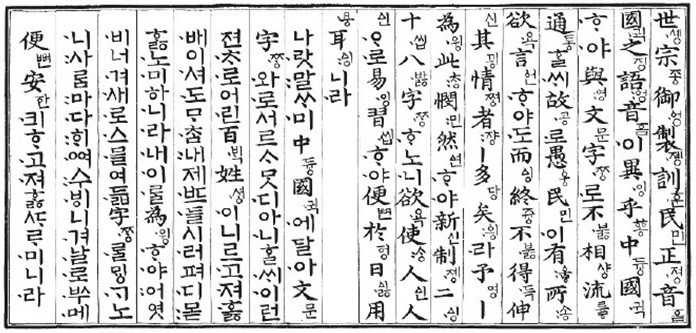 世솅宗종御엉製젱訓훈民민正졍音흠
國귁之징語엉音흠이異잉乎ᅘᅩᆼ中듕國귁
ᄒᆞ야與영文문字ᄍᆞᆼ로不붏相샹流륳
通통ᄒᆞᆯᄊᆡ故공로愚웅民민이有ᅌᅮᇢ所송
欲욕言언ᄒᆞ야도而ᅀᅵᆼ終즁不붏得득伸
신其끵情쪙者쟝ㅣ多당矣ᅌᅴᆼ라予영ㅣ
為윙此충憫민然ᅀᅧᆫᄒᆞ야新신制젱二ᅀᅵᆼ
十씹八밣字ᄍᆞᆼᄒᆞ노니欲욕使ᄉᆞᆼ人ᅀᅵᆫ人
ᅀᅵᆫᄋᆞ로易잉習씹ᄒᆞ야便뼌於ᅙᅥᆼ日ᅀᅵᇙ用
용耳ᅀᅵᆼ니라
나랏말ᄊᆞ미中듕國귁에달아文문
字ᄍᆞᆼ와로서르ᄉᆞᄆᆞᆺ디아니ᄒᆞᆯᄊᆡ이런
젼ᄎᆞ로어린百ᄇᆡᆨ姓셩이니르고져ᄒᆞᇙ
배이셔도ᄆᆞᄎᆞᆷ내제ᄠᅳ들시러펴디몯
ᄒᆞᇙ노미하니라내이ᄅᆞᆯ為윙ᄒᆞ야어엿
비너겨새로스믈여듧字ᄍᆞᆼᄅᆞᆯᄆᆡᇰᄀᆞ노
니사ᄅᆞᆷ마다ᄒᆡᅇᅧ수ᄫᅵ니겨날로ᄡᅮ메
便뼌安한킈ᄒᆞ고져ᄒᆞᇙᄯᆞᄅᆞ미니라